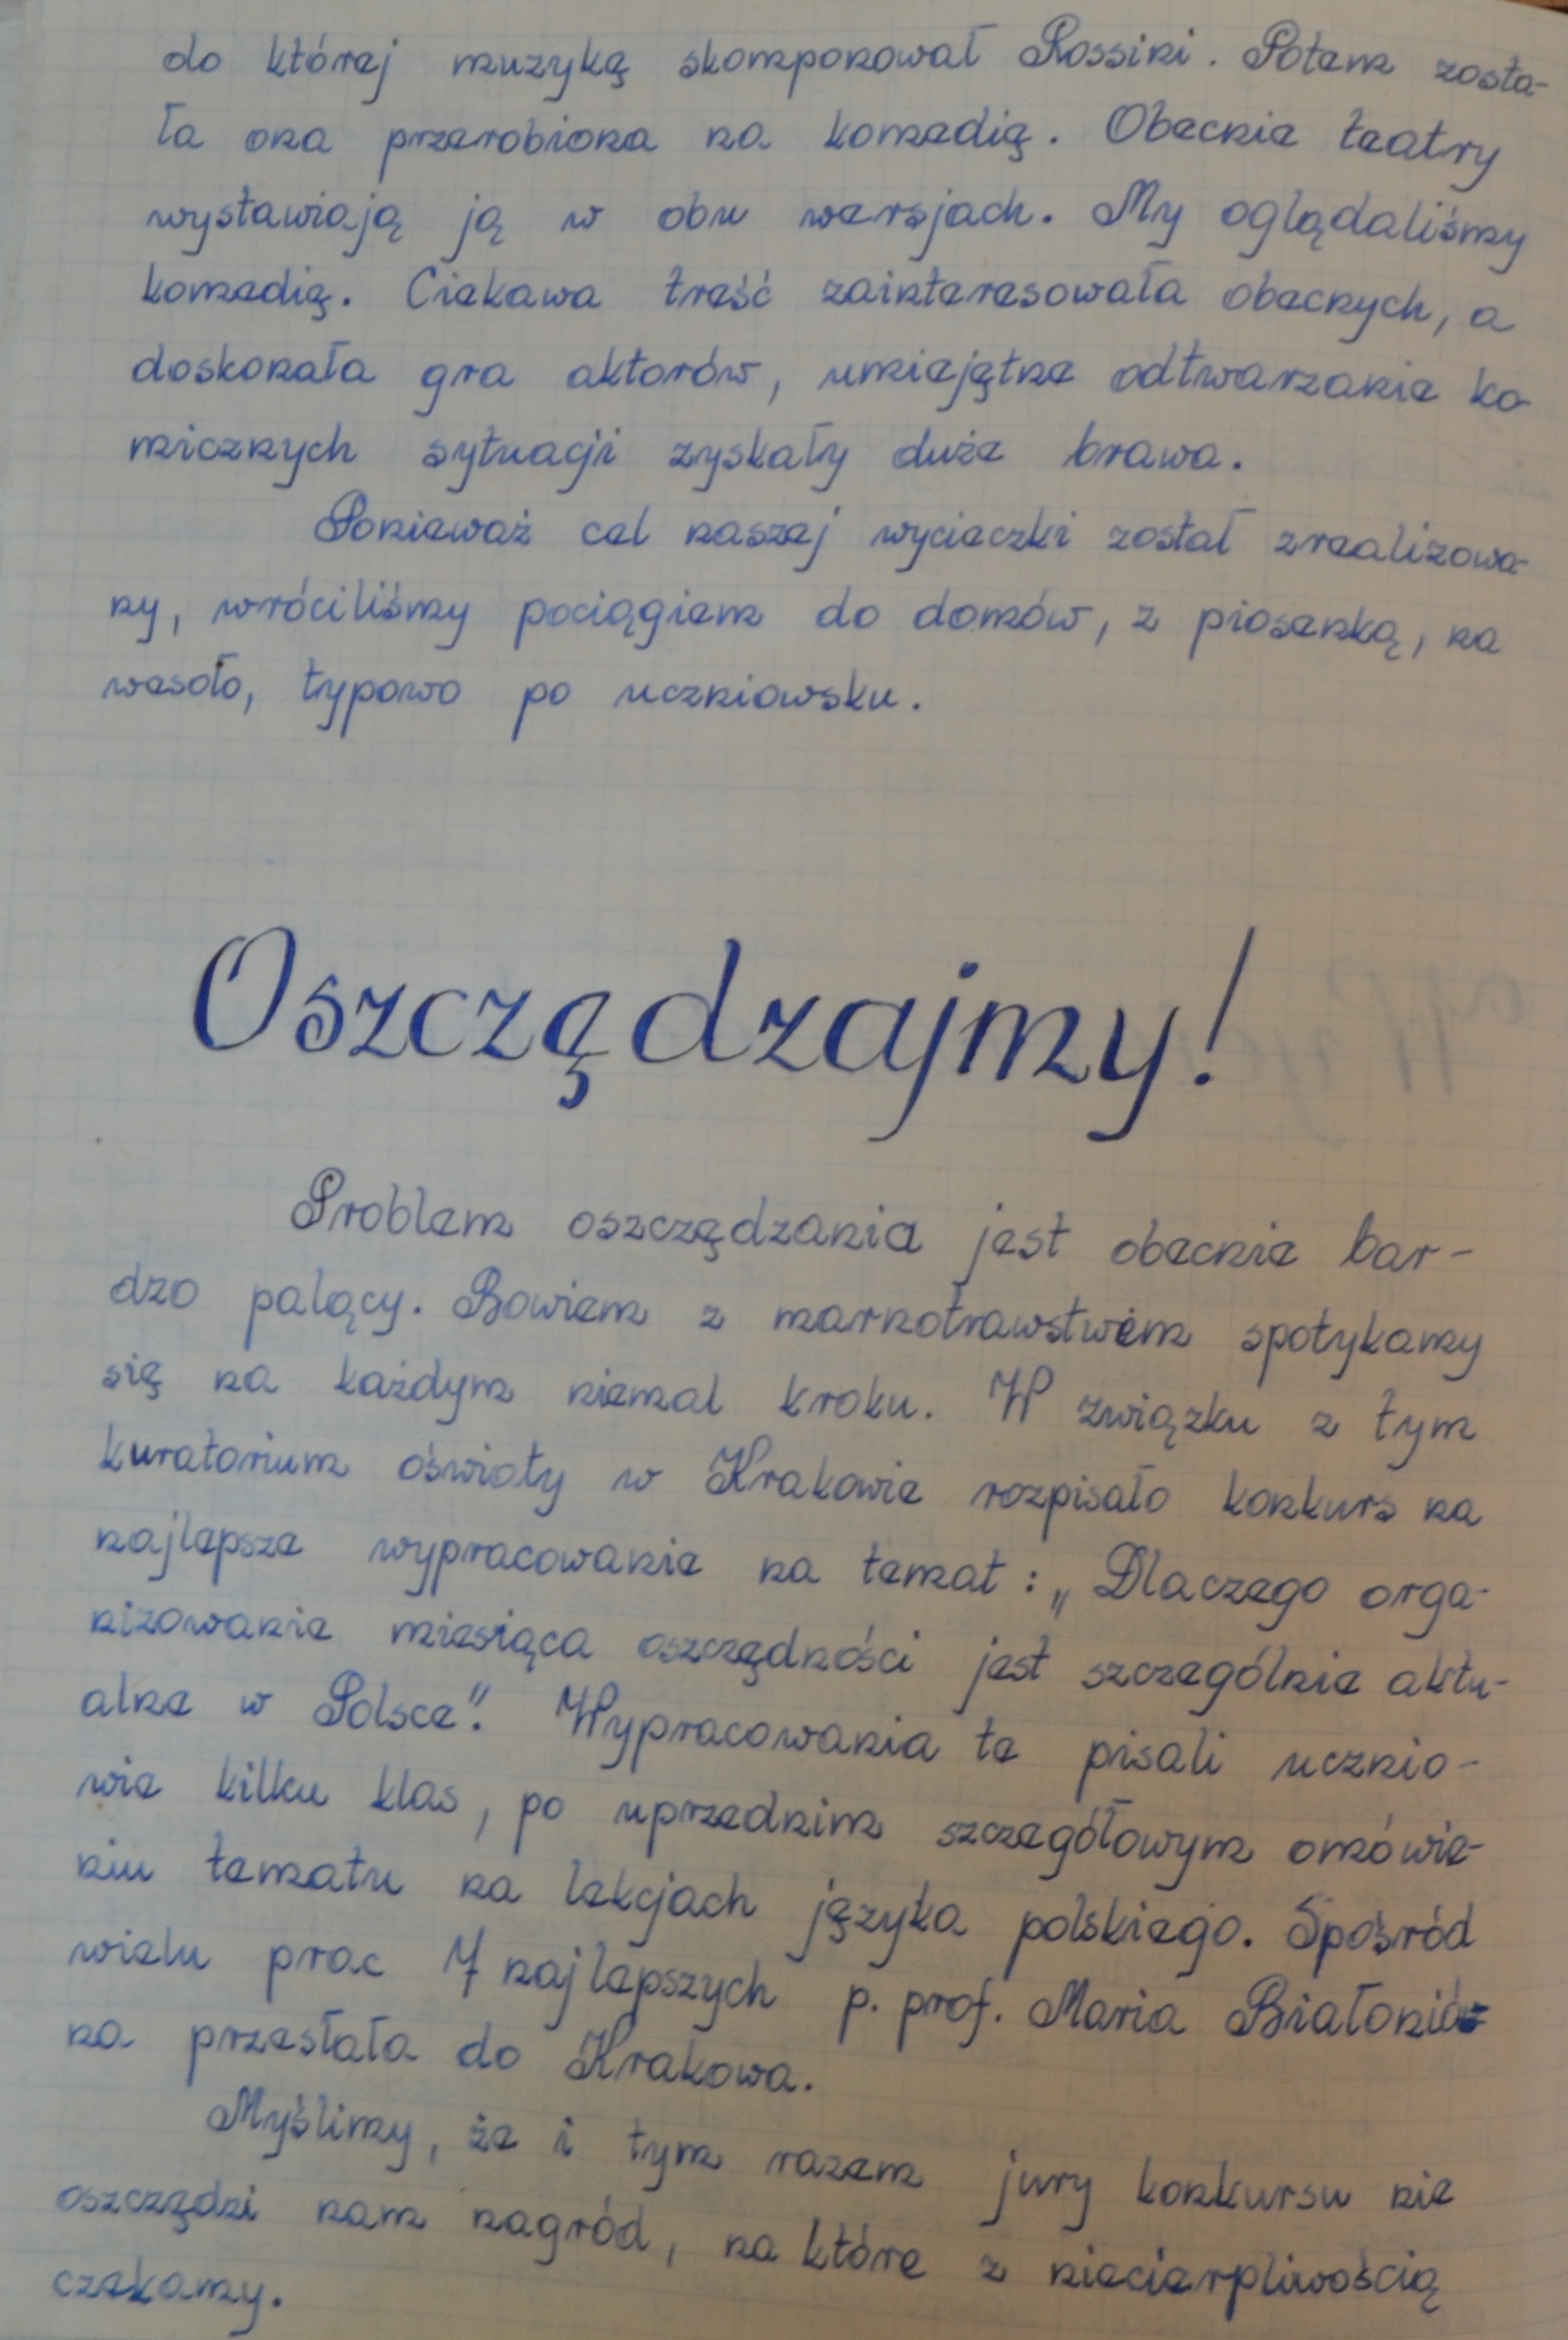 do której muzykę skomponował Rossini. Potem zosta-
ła ona przerobiona na komedię. Obecnie teatry
wystawiają ją w obu wersjach. My oglądaliśmy
komedię. Ciekawa treść zainteresowała obecnych, a
doskonała gra aktorów, umiejętne odtwarzanie ko-
micznych sytuacji zyskały duże brawa.
Ponieważ cel naszej wycieczki został zrealizowa-
ny, wróciliśmy pociągiem do domów, z piosenką, na
wesoło, typowo po uczniowsku.
Oszczędzajmy!
Problem oszczędzania jest obecnie bar-
dzo palący. Bowiem z marnotrawstwem spotykamy
się na każdym niemal kroku. W związku z tym
kuratorium oświaty w Krakowie rozpisało konkurs na
najlepsze wypracowanie na temat: „Dlaczego orga-
nizowanie miesiąca oszczędności jest szczególnie aktu-
alne w Polsce". Wypracowania te pisali ucznio-
wie kilku klas, po uprzednim szczegółowym omówie-
niu tematu na lekcjach języka polskiego. Spośród
wielu prac 7 najlepszych p. prof. Maria Białoniów-
na przesłała do Krakowa.
Myślimy, że i tym razem jury konkursu nie
oszczędzi nam nagród, na które z niecierpliwością
czekamy.